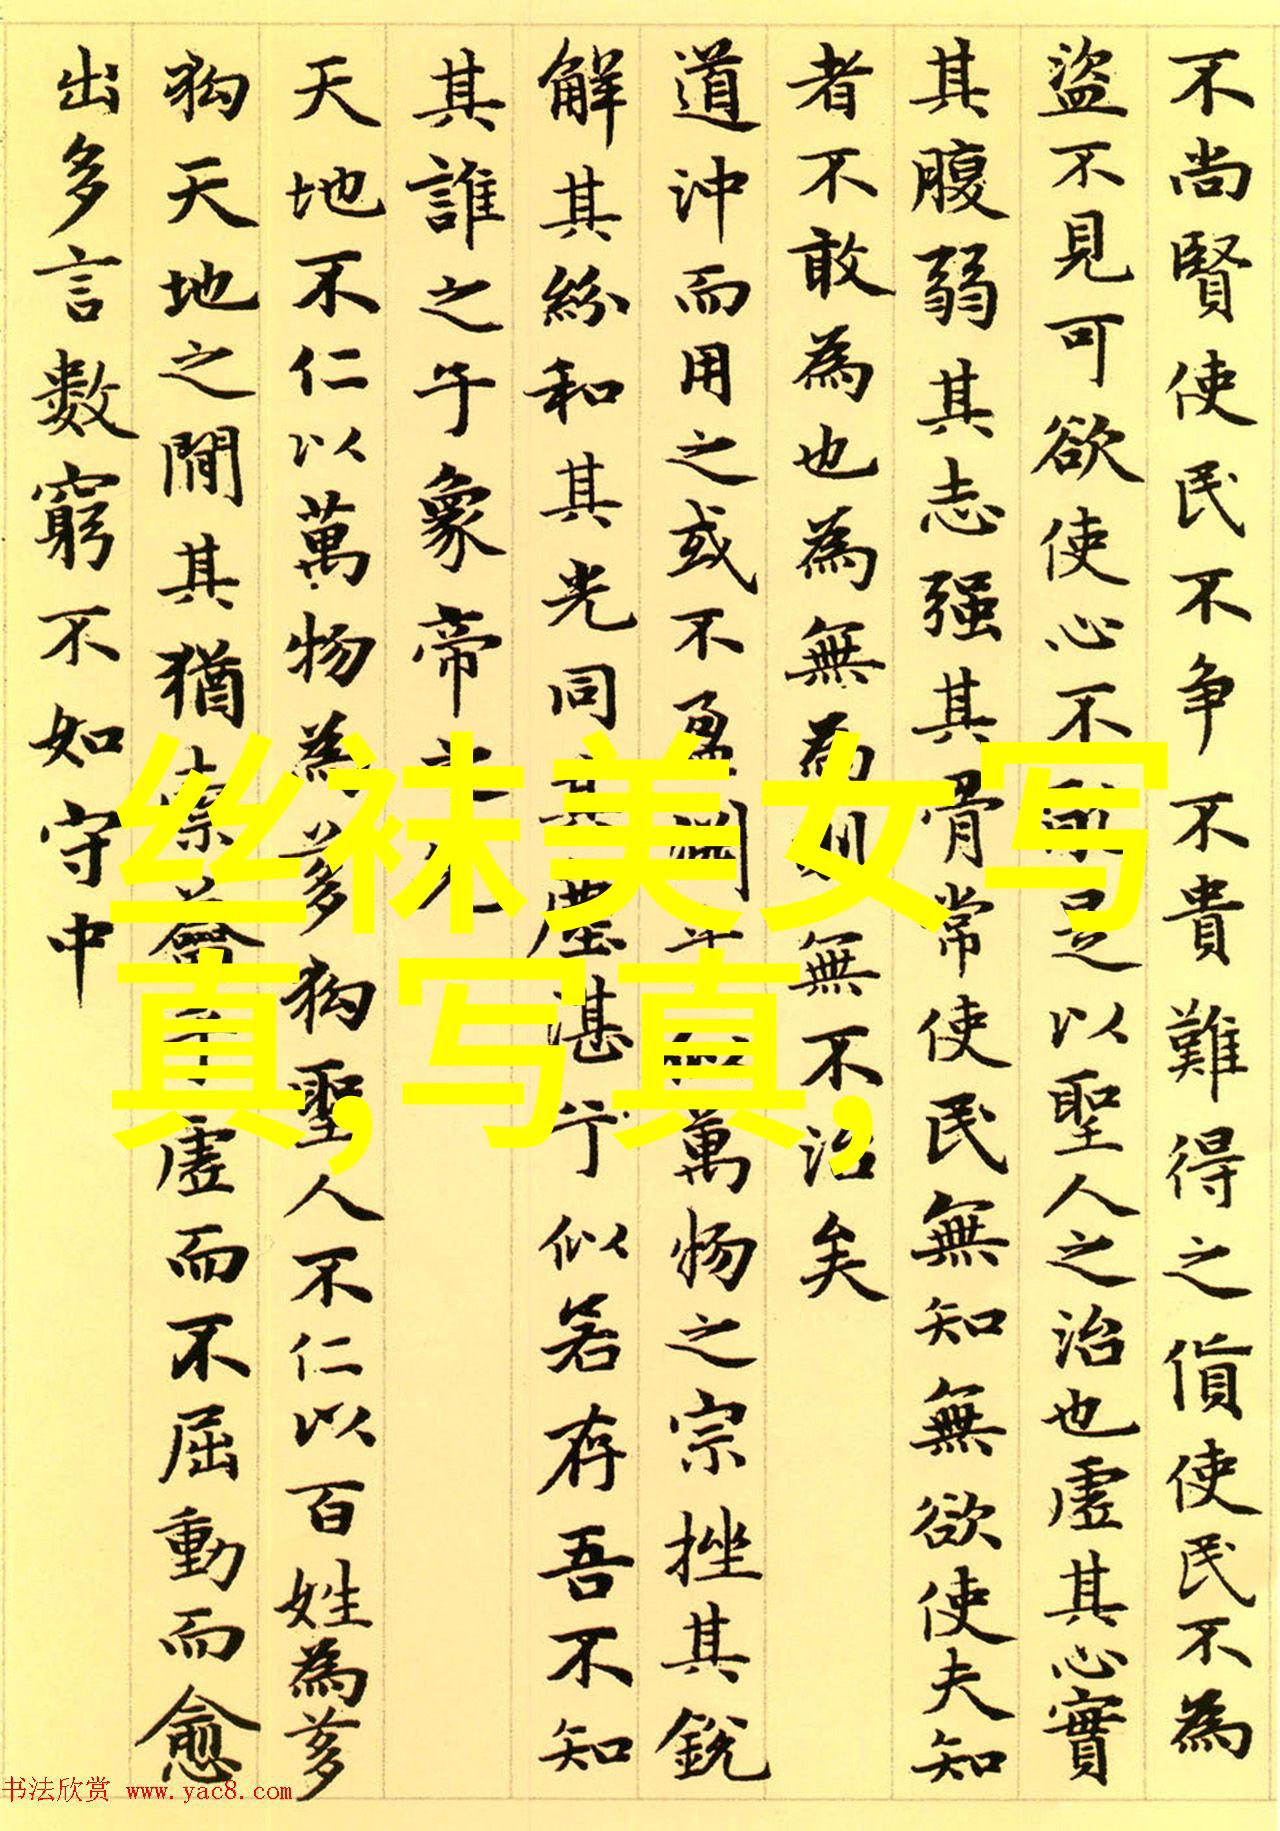 不尚賢使民不争不貴難得之貨使民不為
盜不見可欲使心不是以聖人之治也虛其心實
其腹弱其志强其骨常使民無知無欲使夫知
者不敢為也為無為則無不治矣
道沖而用之或不盈淵萬物之宗挫其銳
解其紛和其光同其塵湛兮似若存吾不知
其誰之子象帝之先
天地不仁以萬物為芻狗聖人不仁以百姓為芻
狗天地之間其猶橐籥乎虛而不屈動而愈
出多言數窮不如守中
丝袜美女写
真,写真,
书法欣赏 www.yac8.com